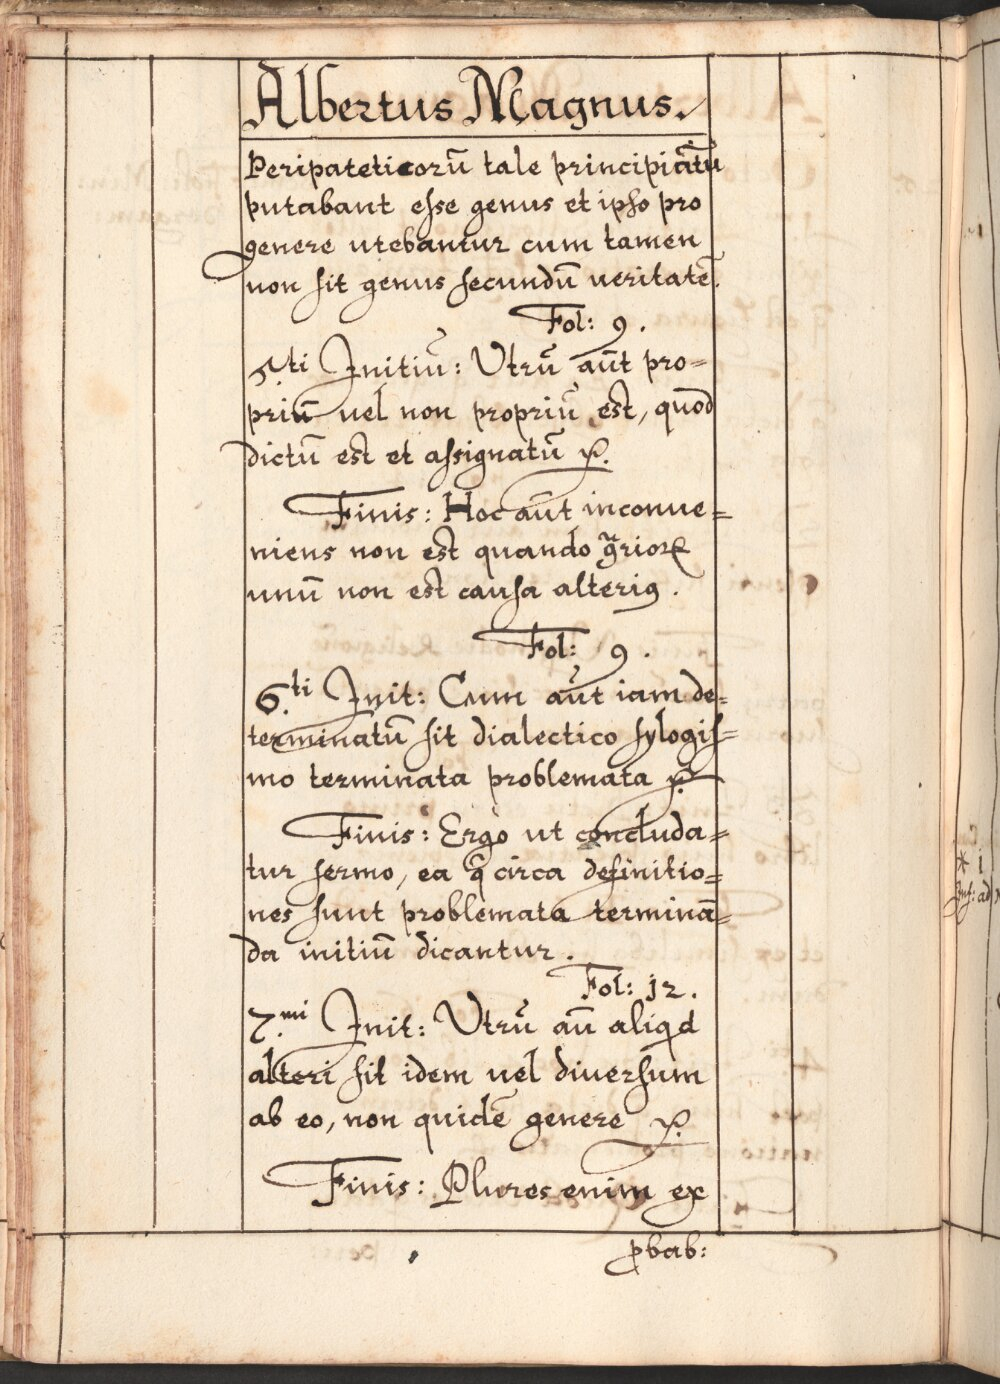 Albertus Magnus.
Peripateticorū tale principiatū
putabant esse genus et ipso pro
genere utebantur cum tamen
non sit genus secundū veritatē.
Fol: 9.
5.ti Initiū: Utrū aūt pro=
priū vel non propriū est, quod
dictū est et assignatū
Finis: Hoc aūt inconve=
niens non est quando
unū non est causa alteriꝰ.
Fol: 9.
6.ti Init: Cum aūt iam de=
terminatū sit dialectico sylogis=
mo terminata problemata
Finis: Ergo ut concluda=
tur sermo, ea q̄ circa definitio=
nes sunt problemata terminā=
da initiū dicantur.
Fol: 12.
7.mi Init: Utrū aū aliqd
alteri sit idem vel diversum
ab eo, non quidē genere
Finis: Plures enim ex
ꝓbab:
* i
ad